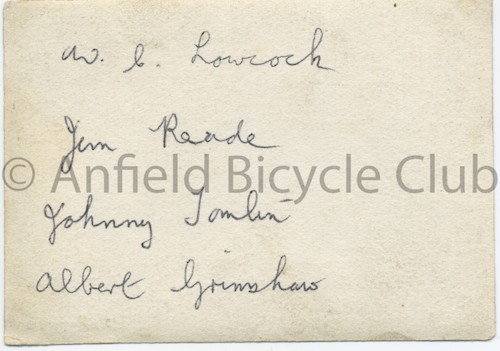 W. C. Lowcock
Jim Reade
© Anfield Bicycle Club
Johnny Tomlin
Albert Grimshaw